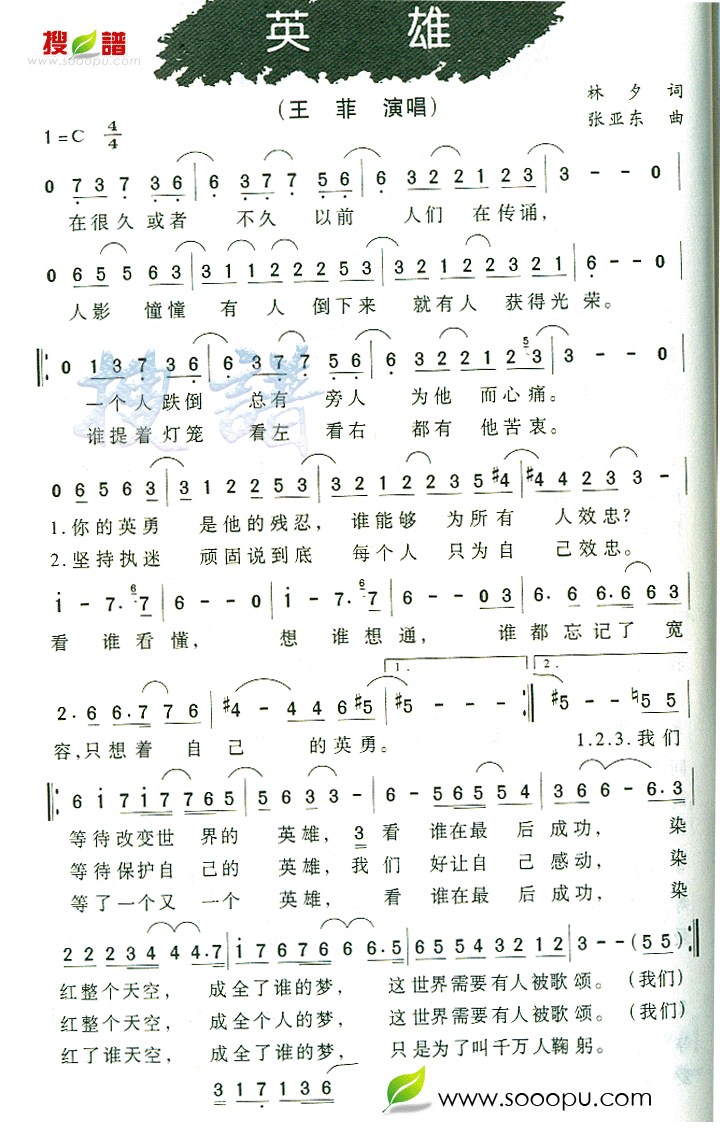 搜谱
www.sooopu.com
英 雄
(王 菲 演唱)
林 夕 词
张亚东 曲
1=C 4/4
0 7 3 7 3 6 | 6 3 7 7 5 6 | 6 3 2 2 1 2 3 | 3 - - 0
在很久或者 不久 以前 人们 在传诵,
0 6 5 5 6 3 | 3 1 1 2 2 2 2 5 3 | 3 2 1 2 2 3 2 1 | 6 - - 0
人影 憧憧 有 人 倒下来 就有人 获得光荣。
0 1 3 7 3 6 | 6 3 7 7 5 6 | 6 3 2 2 1 2 5 3 | 3 - - 0
一个人跌倒 总有 旁人 为他 而心痛。
谁提着灯笼 看左 看右 都有 他苦衷。
0 6 5 6 3 | 3 1 2 2 5 3 | 3 2 1 2 2 3 5 #4 | #4 4 2 2 3 -
1.你的英勇 是他的残忍, 谁能够 为所有 人效忠?
2.坚持执迷 顽固说到底 每个人 只为自 己效忠。
i - 7. 6 7 | 6 - - 0 | i - 7. 6 7 | 6 - - 0 3 | 6. 6 6. 6 6 3
看 谁看懂, 想 谁想通, 谁都忘记了 宽
2. 6 6. 7 7 6 | #4 - 4 4 6 #5 | #5 - - :| #5 - - ♮5 5
1. 2.
容,只想着 自 己 的英勇。 1.2.3.我们
6 i 7 i 7 7 6 5 | 5 6 3 3 - | 6 - 5 6 5 5 4 | 3 6 6 - 6. 3
等待改变世 界的 英雄, 3 看 谁在最 后成功, 染
等待保护自 己的 英雄, 我们 好让自 己感动, 染
等了一个又 一个 英雄, 看 谁在最 后成功, 染
2 2 2 3 4 4 4. 7 | i 7 6 7 6 6 6. 5 | 6 5 5 4 3 2 1 2 | 3 - - (5 5) :|
红整个天空, 成全了谁的梦, 这世界需要有人被歌颂。(我们)
红整个天空, 成全个人的梦, 这世界需要有人被歌颂。(我们)
红了谁天空, 成全了谁的梦, 只是为了叫千万人鞠躬。
3 1 7 1 3 6
www.sooopu.com